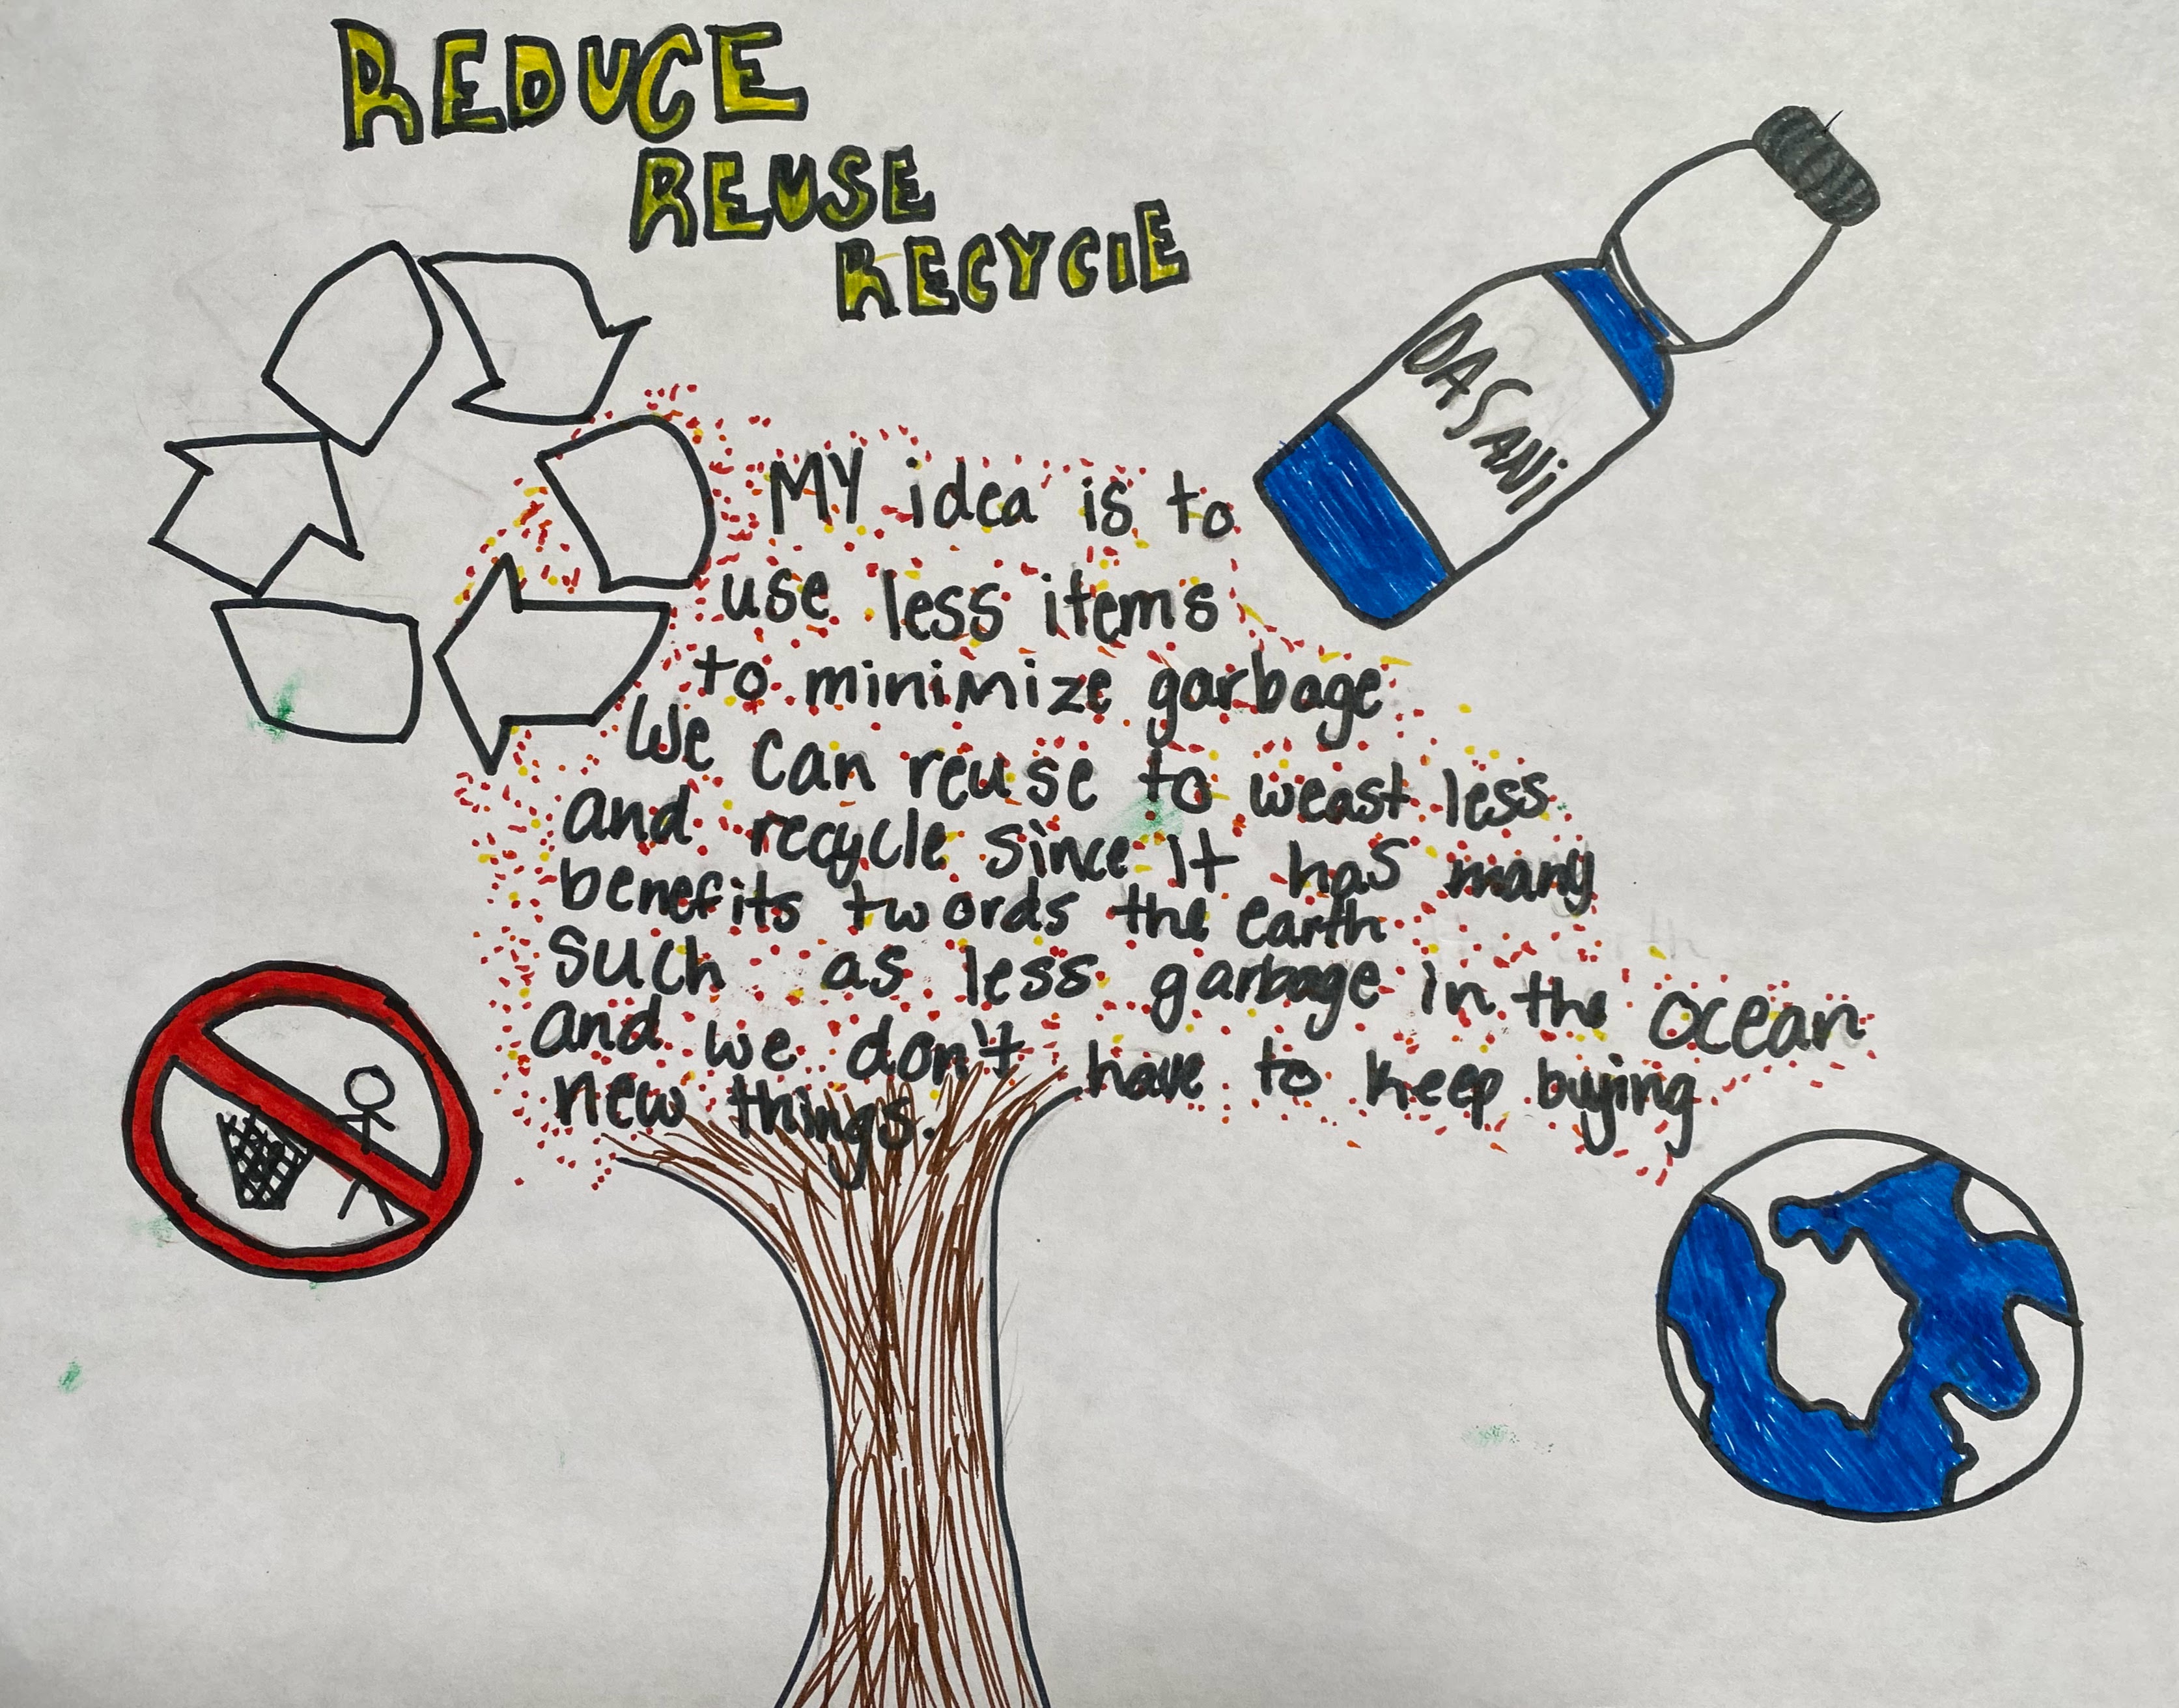 REDUCE
REUSE
RECYClE
DASANi
MY idea is to
use less items
to minimize garbage
We can reuse to weast less
and recycle since it has many
benefits twords the earth
such as less garbage in the ocean
and we don't have to keep buying
new things.